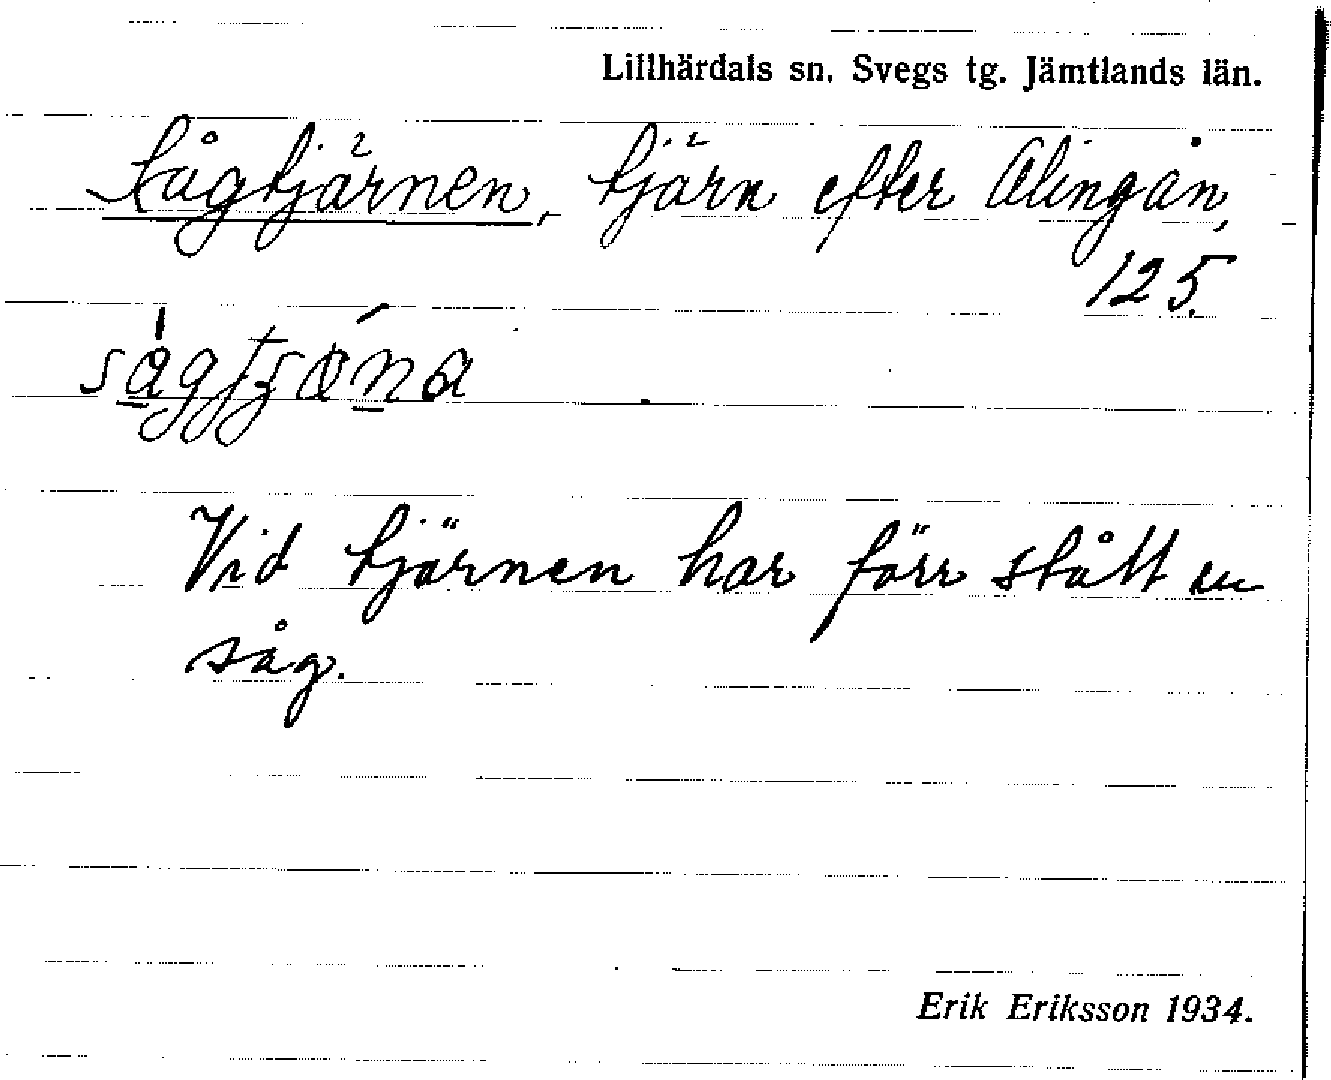 Lillhärdals sn. Svegs tg. Jämtlands län.
Sågtjärnen, tjärn efter Alingån,
125.
Vid tjärnen har förr stått en
såg.
Erik Eriksson 1934.